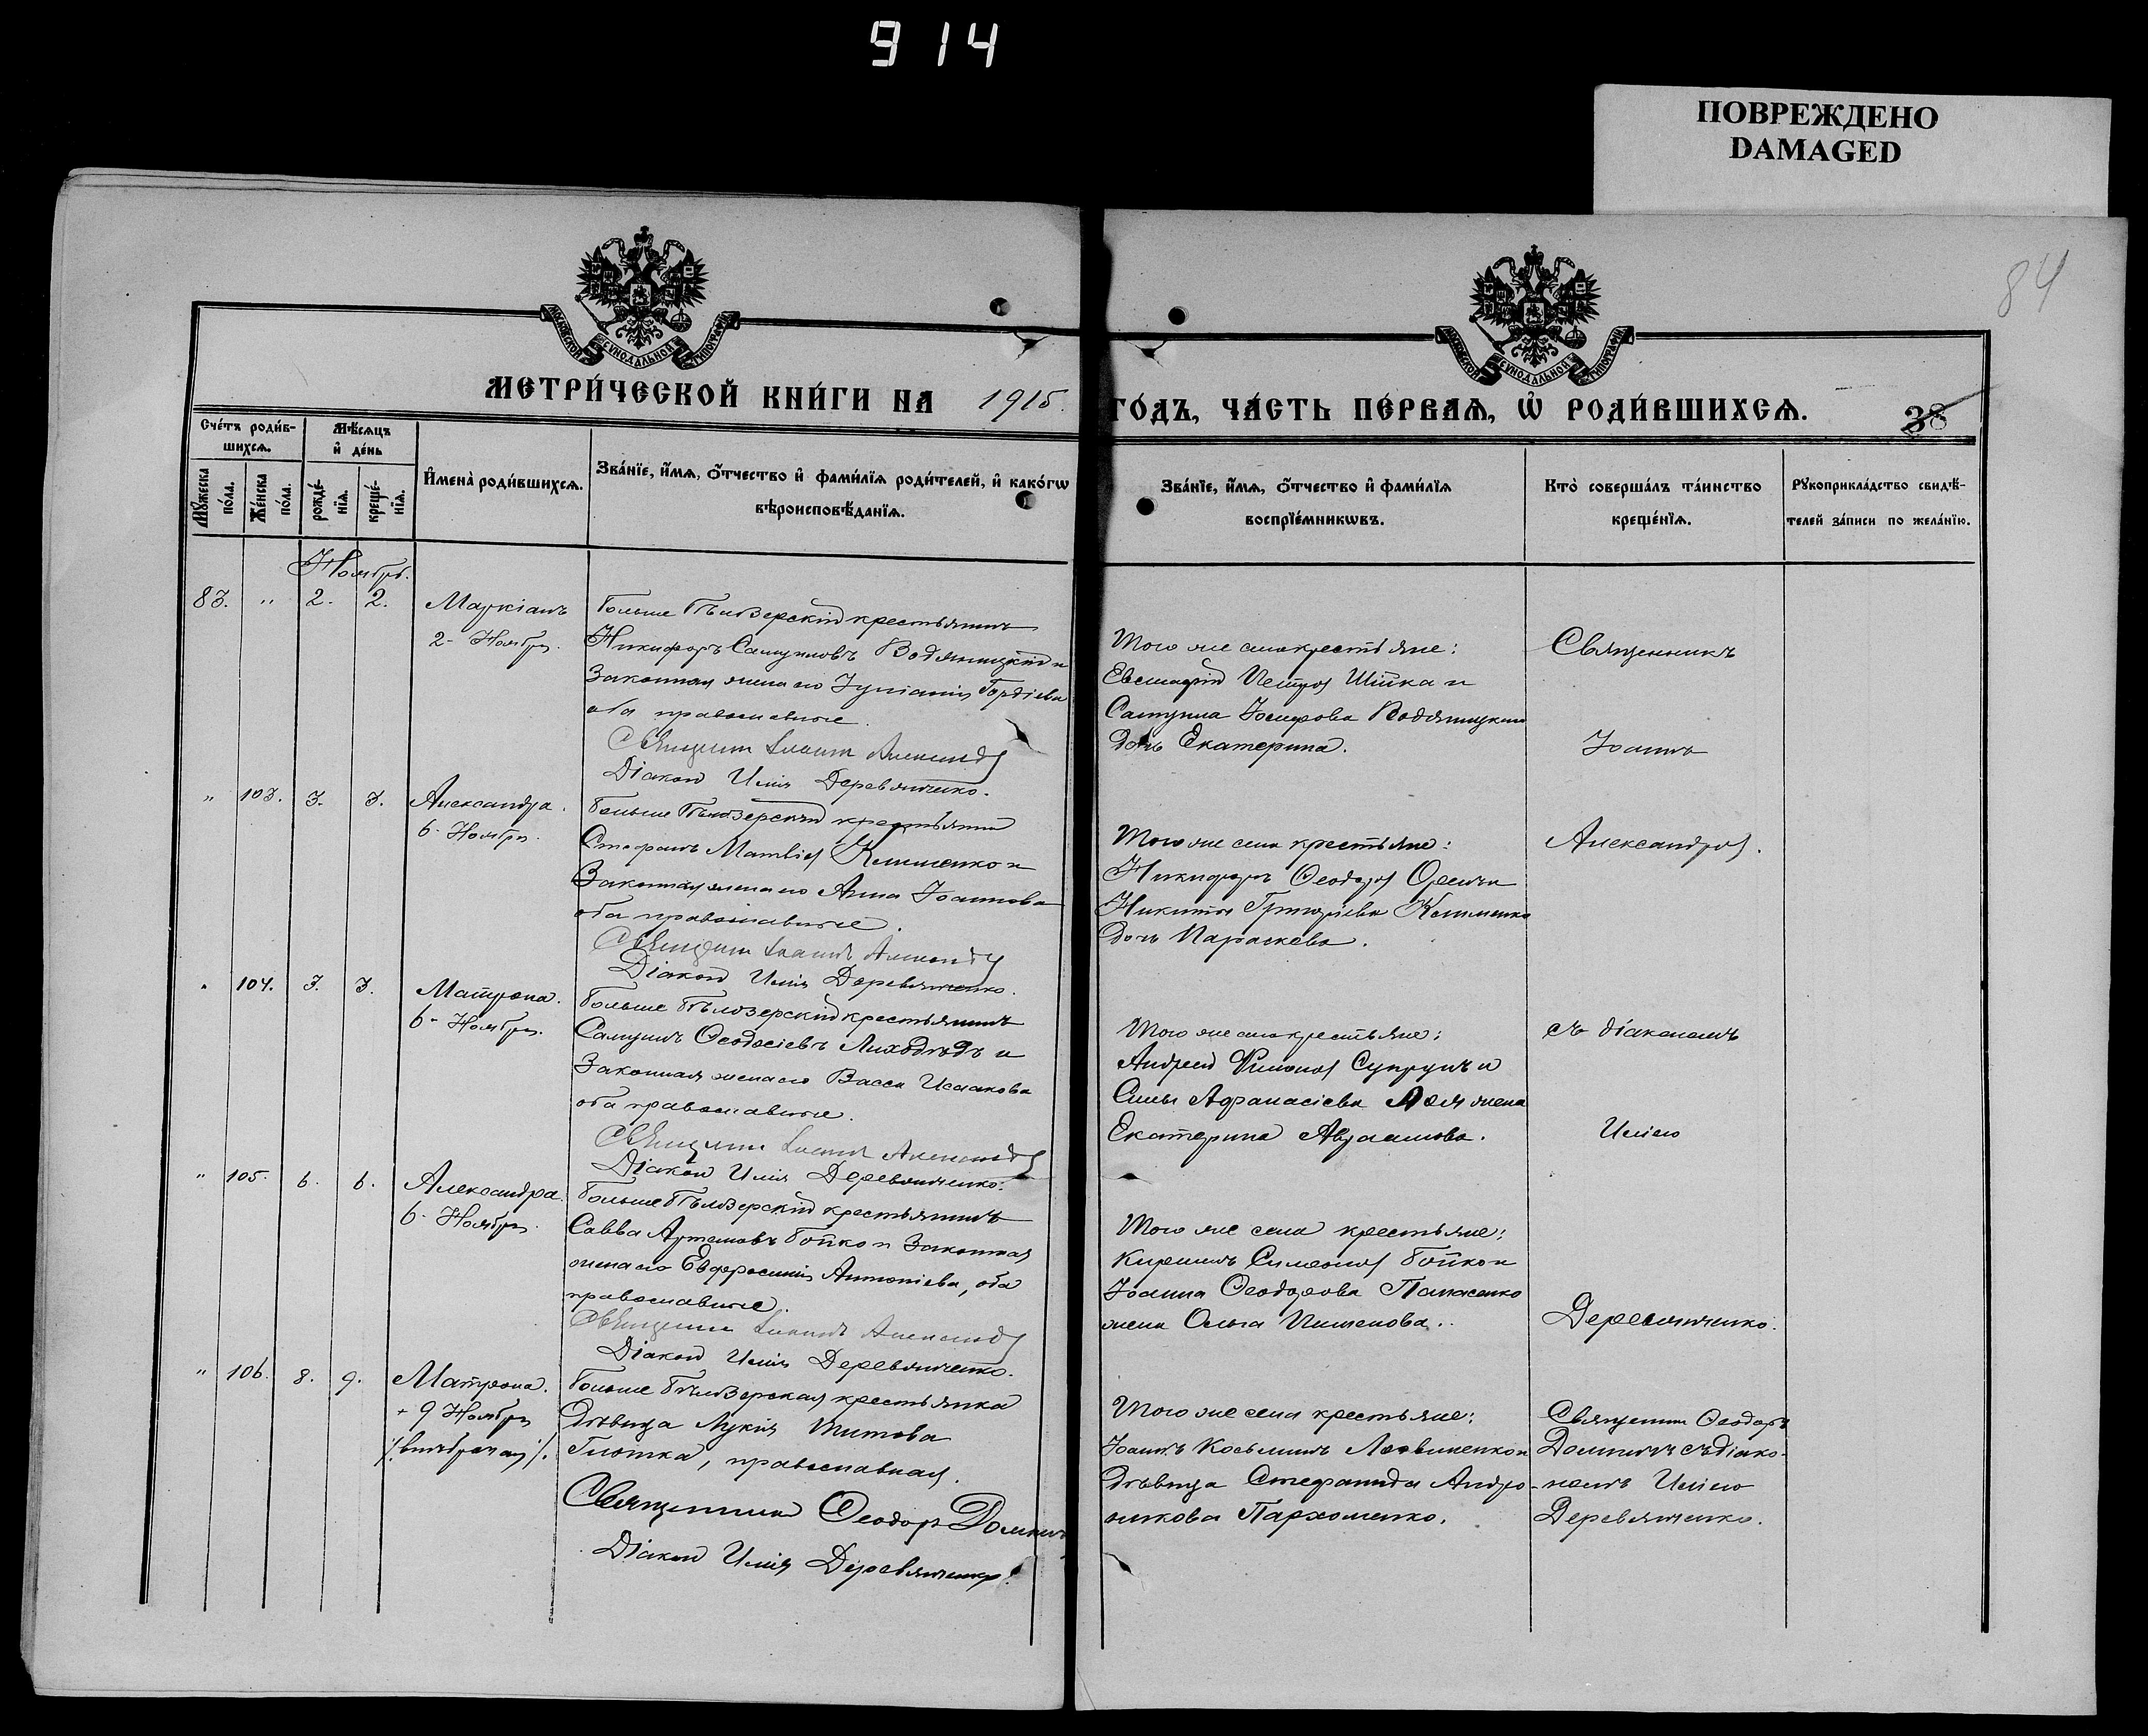 914
ПОВРЕЖДЕНО
DAMAGED
84
МОСКОВСКОЙ СѴНОДАЛЬНОЙ ТИПОГРАФІИ
МОСКОВСКОЙ СѴНОДАЛЬНОЙ ТИПОГРАФІИ
МЕТРИ́ЧЕСКОЙ КНИ́ГИ НА 1915.
ГО́ДЪ, ЧА́СТЬ ПЕ́РВАѦ, Ѡ РОДИ́ВШИХСѦ.
38
Сче́тъ роди́в-
шихсѧ.
Мѣ́сѧцъ
и҆ де́нь
Мꙋ́жеска
по́ла.
Же́нска
по́ла.
рожде́-
нїѧ.
креще́-
нїѧ.
И҆мена̀ роди́вшихсѧ.
Зва́нїе, и҆́мѧ, ѻ҆́тчество и҆ фами́лїѧ роди́телей, и҆ како́гѡ
вѣроисповѣ́данїѧ.
Зва́нїе, и҆́мѧ, ѻ҆́тчество и҆ фами́лїѧ
воспрїе́мникѡвъ.
Кто̀ соверша́лъ та́инство
креще́нїѧ.
Рꙋкоприкла́дство свидѣ́-
телей за́писи по жела́нїю.
Ноябрь.
83. " 2. 2. Маркіанъ
2- Ноября.
Больше Бѣлозерскій крестьянинъ
Никифоръ Самуиловъ Водяницкій и
Законная жена его Іуліанія Гордіева
оба православные.
Священникъ Іоаннъ Александровъ
Діаконъ Илія Деревянченко.
Того же села крестьяне:
Евстафій Петровъ Шпика и
Самуила Іосифова Водяницкаго
дочь Екатерина.
Священникъ
Іоаннъ
" 103. 3. 3. Александра.
6- Ноября.
Больше Бѣлозерскій крестьянинъ
Стефанъ Матвіевъ Клименко и
Законная жена его Анна Іоаннова
оба православные.
Священникъ Іоаннъ Александровъ
Діаконъ Илія Деревянченко.
Того же села крестьяне:
Никифоръ Ѳеодоровъ и
Никиты Григоріева Клименко
дочь Параскева.
Александровъ.
" 104. 3. 3. Матрона.
6- Ноября.
Больше Бѣлозерскій крестьянинъ
Самуилъ Ѳеодосіевъ Лиходѣдъ и
Законная жена его Васса Исаакова
оба православные.
Священникъ Іоаннъ Александровъ
Діаконъ Илія Деревянченко.
Того же села крестьяне:
Андрей Супрунъ и
Силы Афанасіева жена
Екатерина Авраамова.
съ діакономъ
Иліею
" 105. 6. 6. Александра.
6- Ноября.
Больше Бѣлозерскій крестьянинъ
Савва Артемовъ Бойко и Законная
жена его Евфросинія Антоніева, оба
православные.
Священникъ Іоаннъ Александровъ
Діаконъ Илія Деревянченко.
Того же села крестьяне:
Кириллъ Симеоновъ Бойко и
Іоанна Ѳеодорова Панасенко
жена Ольга Пименова.
Деревянченко.
" 106. 8. 9. Матрона.
+ 9 Ноября
/: внѣбрачная :/.
Больше Бѣлозерская крестьянка
Дѣвица Лукія Титова
Глотка, православная.
Священникъ Ѳеодоръ
Діаконъ Илія Деревянченко.
Того же села крестьяне:
Іоаннъ Косьминъ Литвиненко и
Дѣвица Стефанида Андро-
никова Пархоменко.
Священникъ Ѳеодоръ
съ діако-
номъ Иліею
Деревянченко.